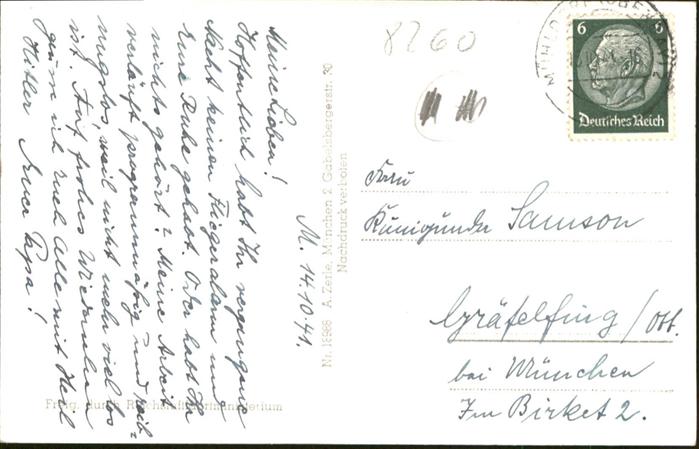 Meine Lieben!
Hoffentlich habt Ihr vergangene
Nacht keinen Fliegeralarm und
Eure Ruhe gehabt. Oder habt Ihr
nichts gehört? Meine Arbeit
verläuft programmäßig und
weil nicht mehr viel los
ist. Auf frohes Wiedersehn
ich Euch alle mit Heil
Hitler Euer Papa!
M. 14.10.41.
Nr. A. Zerle, München 2 Gabelsbergerstr. 30
Nachdruck verboten
Freig. durch Reichsluftfahrtministerium
8260
6 6
Deutsches Reich
MÜHLDORF (OBERBAY)
Frau
Kunigunde Samson
Gräfelfing/Obb.
bei München
Im Birket 2.